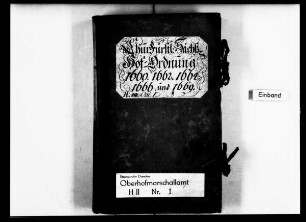 Churfürstl. Sächß.
Hof-Ordnung
1660. 1662. 1664
1666 und 1669.
Oberhofmarschallamt
H II Nr. 1
Einband